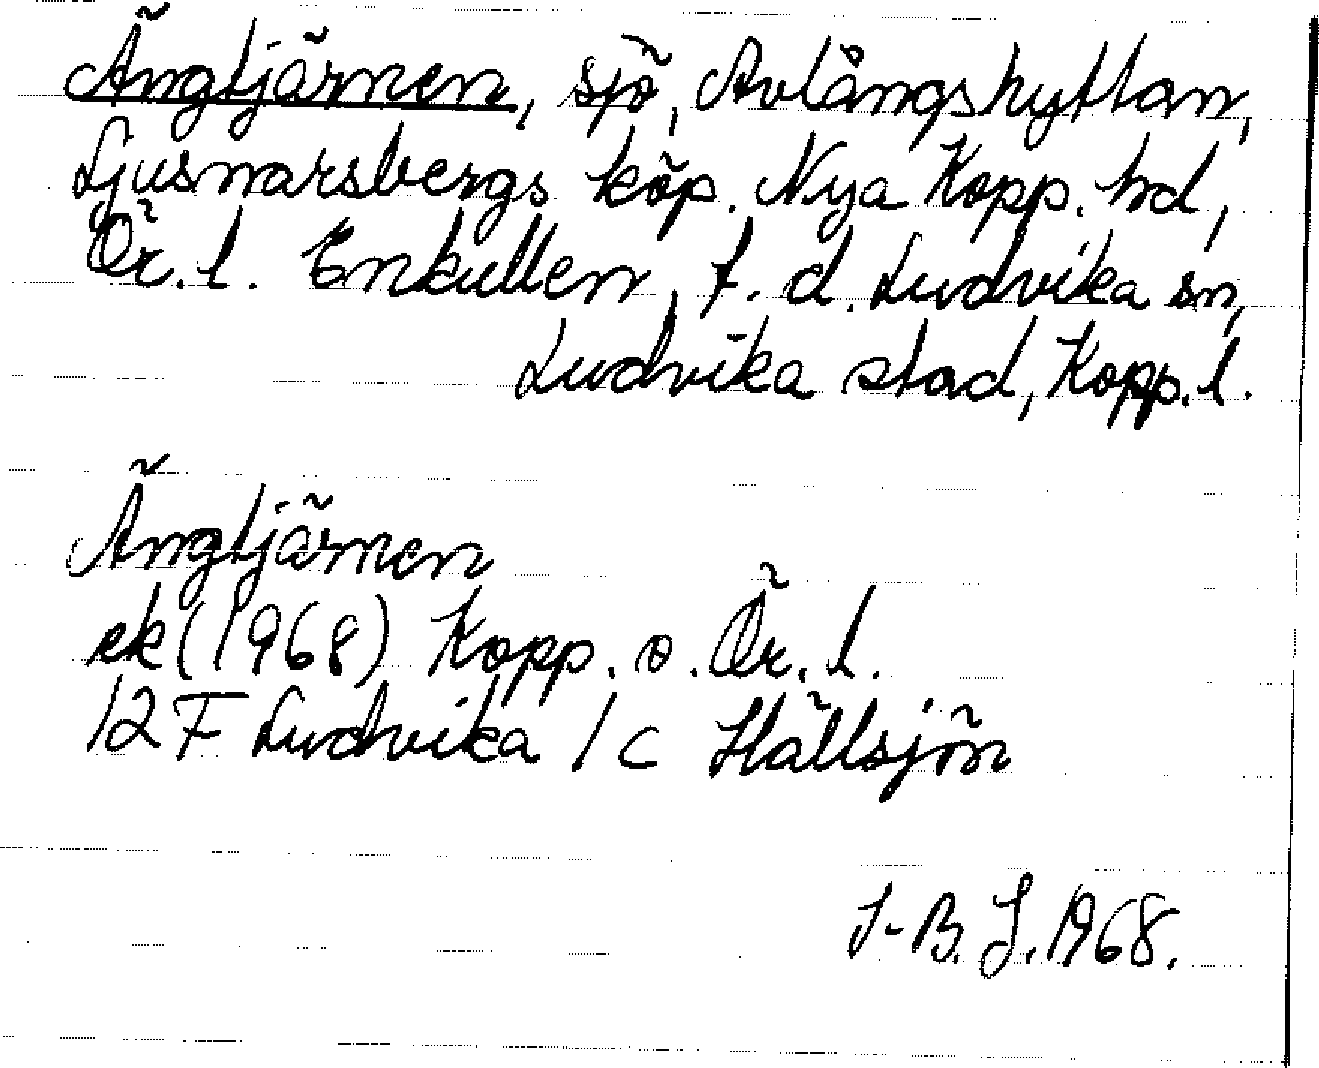 Ängtjärnen, sjö, Avlångshyttan,
Ljusnarsbergs köp. Nya Kopp. hd,
Ör. l. Enkullen, f. d. Ludvika sn,
Ludvika stad, Kopp. l.
Ängtjärnen
ek (1968) Kopp. o. Ör. l.
12 F Ludvika 1 c Hällsjön
I-B. J. 1968.